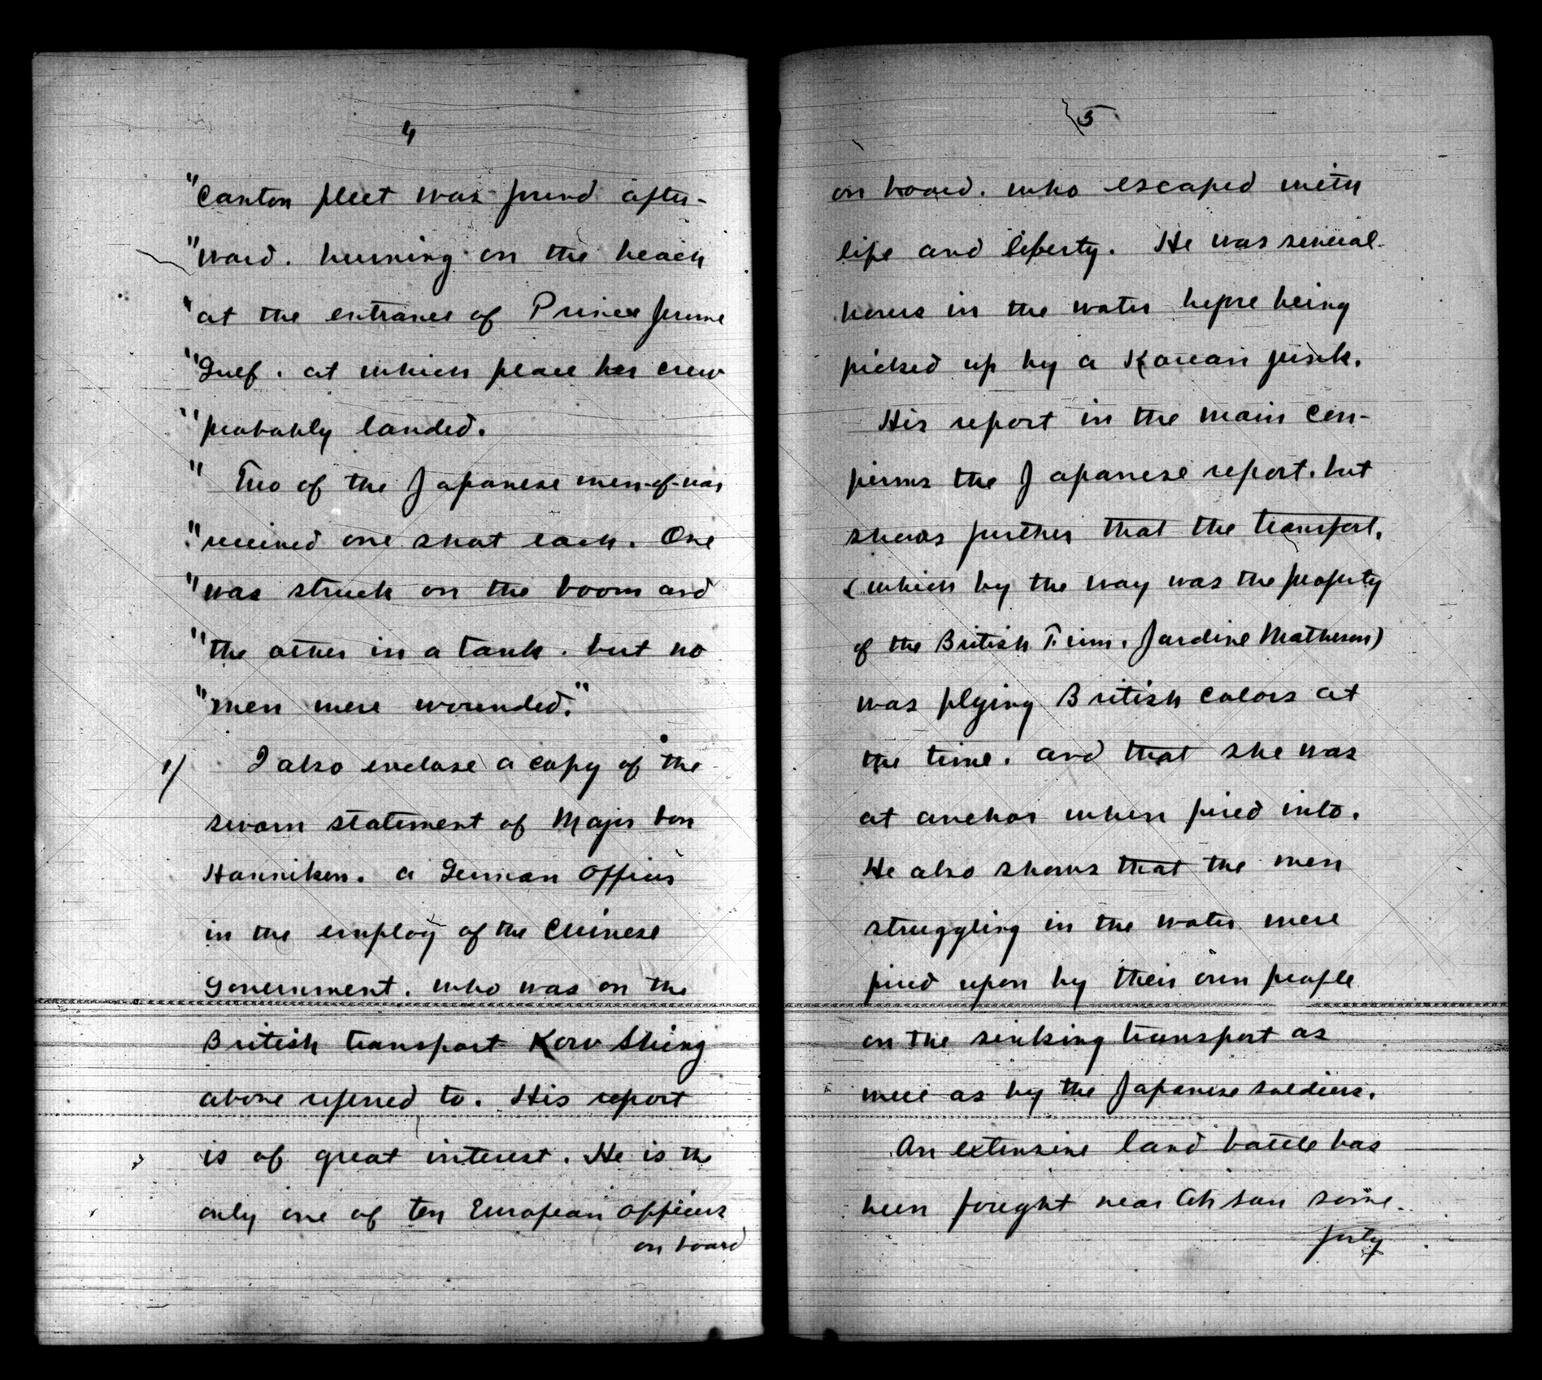 4
"Canton fleet was found after-
"ward. burning on the beach
"at the entrance of Prince Jerome
"Gulf. at which place her crew
"probably landed.
" Two of the Japanese men-of-war
"received one shot each. One
"was struck on the boom and
"the other in a tank. but no
"men were wounded."
1/ I also enclose a copy of the
sworn statement of Major von
Hanniken. a German officer
in the employ of the Chinese
Government. who was on the
British transport Kow Shing
above referred to. His report
is of great interest. He is the
only one of ten European officers
on board
5
on board. who escaped with
life and liberty. He was several
hours in the water before being
picked up by a Korean junk.
His report in the main con-
firms the Japanese report. but
shows further that the transport.
(which by the way was the property
of the British Firm. Jardine Matheson)
was flying British colors at
the time. and that she was
at anchor when fired into.
He also shows that the men
struggling in the water were
fired upon by their own people
on the sinking transport as
well as by the Japanese soldiers.
An extensive land battle has
been fought near Ah San some.
forty